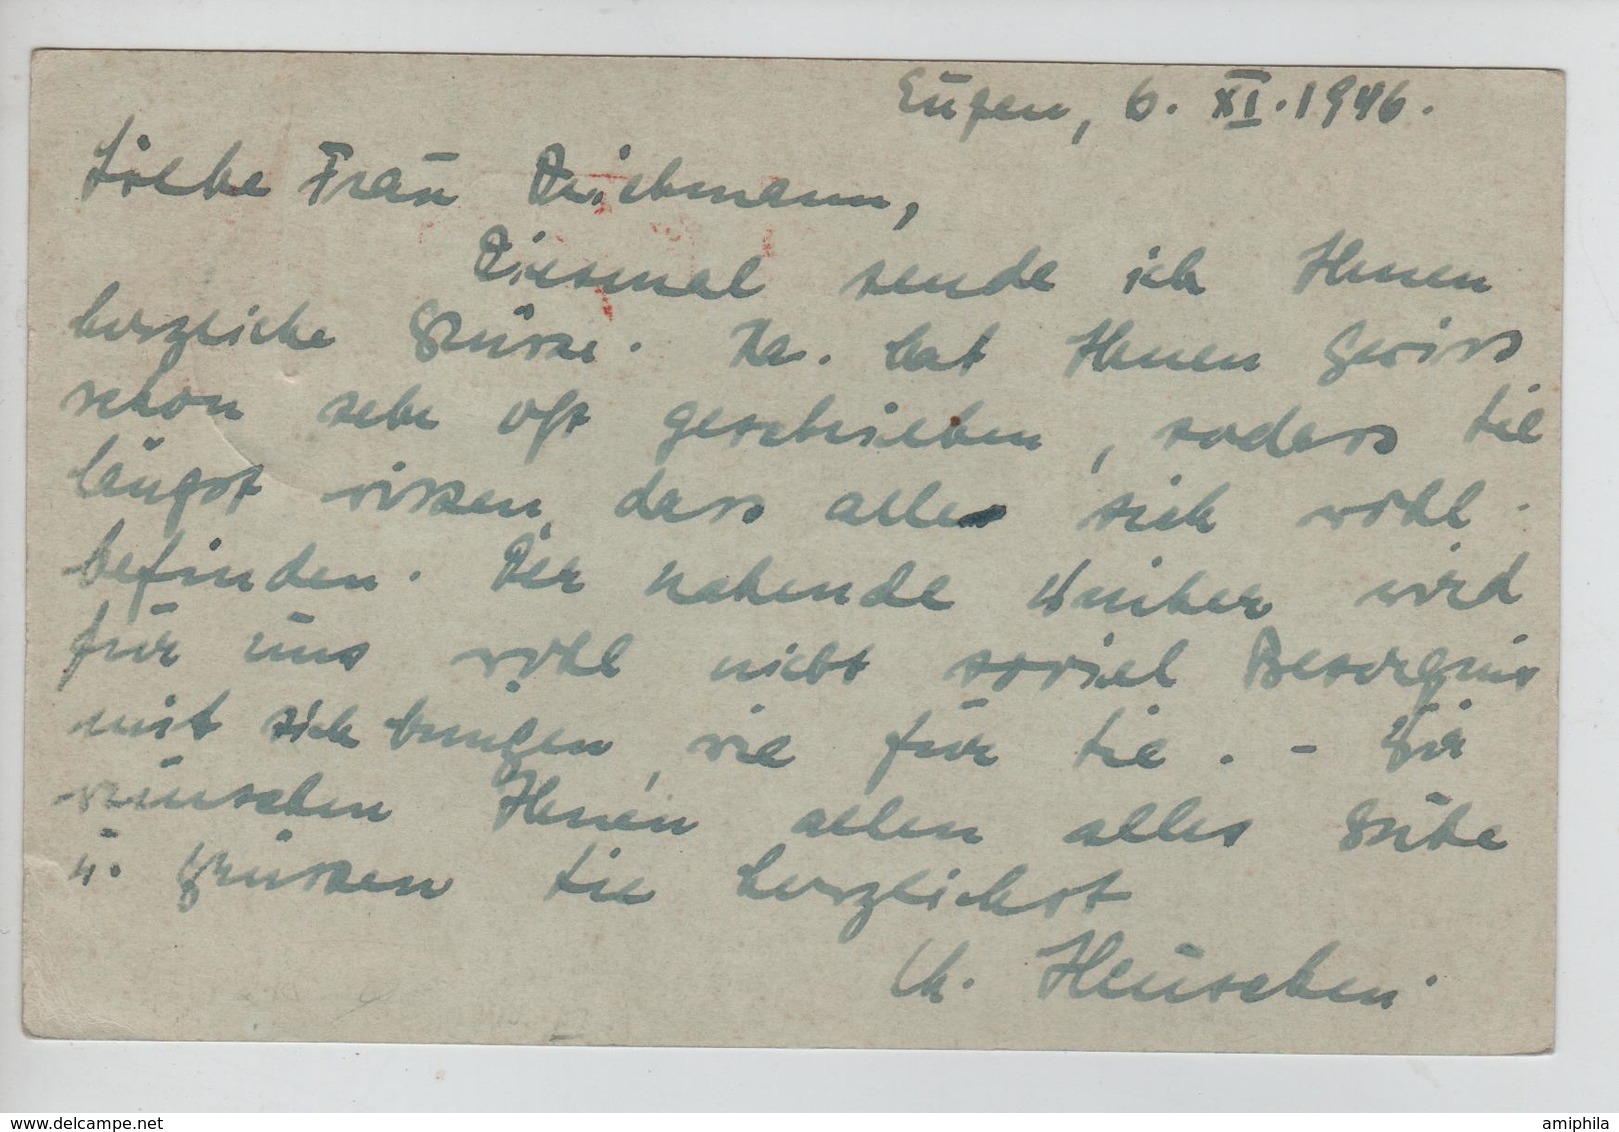 Eupen, 6. XI. 1946.
Liebe Frau Driehmann,
Diesmal sende ich Ihnen
herzliche Grüsse. Ka. hat Ihnen gewiss
schon sehr oft geschrieben, sodass Sie
längst wissen, dass alle sich wohl-
befinden. Der nahende Winter wird
für uns wohl nicht soviel Besorgnis
mit sich bringen, wie für Sie. - Wir
wünschen Ihnen allen alles Gute
u. grüssen Sie herzlichst
Ch. Heuschen.
amiphila